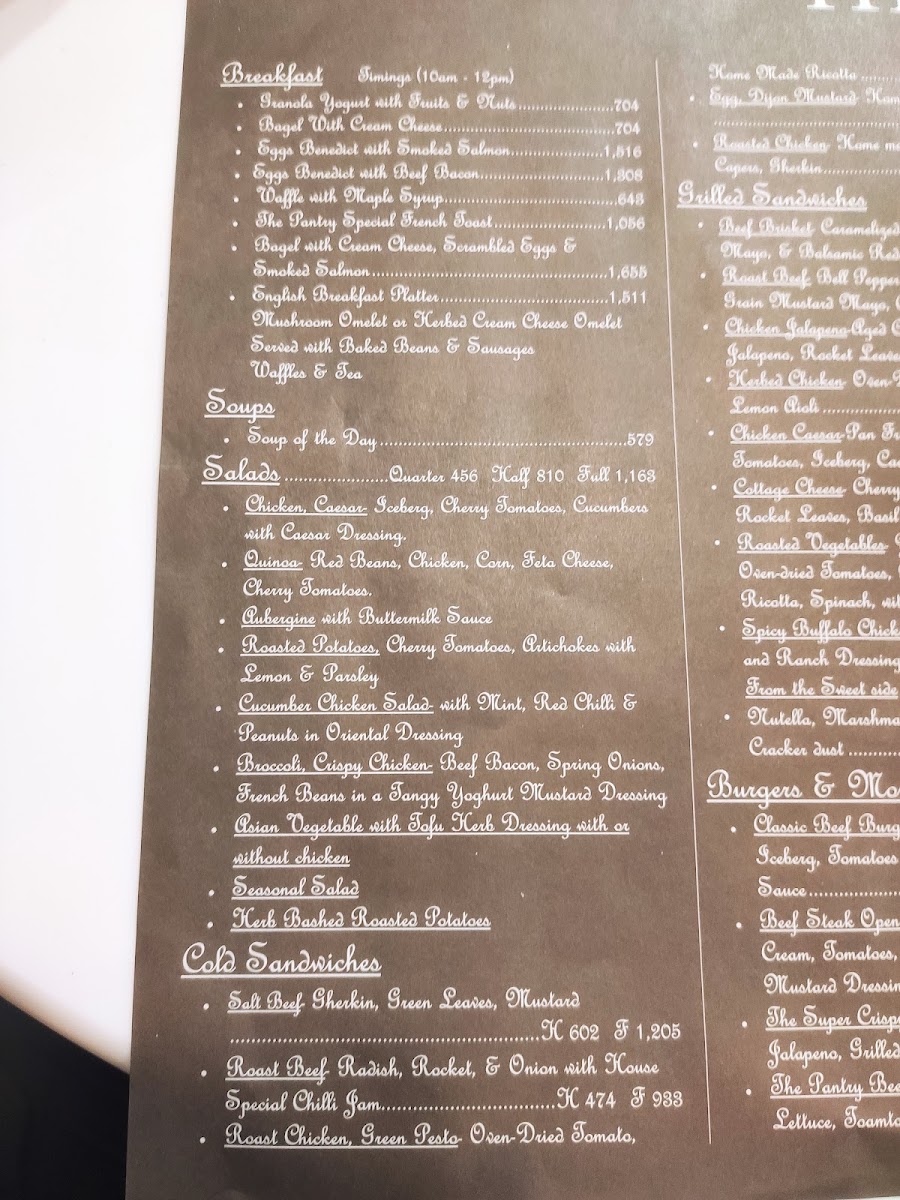 Breakfast Timings (10am - 12pm)
Granola Yogurt with Fruits & Nuts.....................704
Bagel With Cream Cheese.....................................704
Eggs Benedict with Smoked Salmon....................1,516
Eggs Benedict with Beef Bacon...........................1,308
Waffle with Maple Syrup.....................................643
The Pantry Special French Toast........................1,056
Bagel with Cream Cheese, Scrambled Eggs &
Smoked Salmon...................................................1,655
English Breakfast Platter....................................1,511
Mushroom Omelet or Herbed Cream Cheese Omelet
Served with Baked Beans & Sausages
Waffles & Tea
Soups
Soup of the Day....................................................579
Salads ......................Quarter 456 Half 810 Full 1,163
Chicken, Caesar- Iceberg, Cherry Tomatoes, Cucumbers
with Caesar Dressing.
Quinoa- Red Beans, Chicken, Corn, Feta Cheese,
Cherry Tomatoes.
Aubergine with Buttermilk Sauce
Roasted Potatoes, Cherry Tomatoes, Artichokes with
Lemon & Parsley
Cucumber Chicken Salad- with Mint, Red Chilli &
Peanuts in Oriental Dressing
Broccoli, Crispy Chicken- Beef Bacon, Spring Onions,
French Beans in a Tangy Yoghurt Mustard Dressing
Asian Vegetable with Tofu Herb Dressing with or
without chicken
Seasonal Salad
Herb Bashed Roasted Potatoes
Cold Sandwiches
Salt Beef- Gherkin, Green Leaves, Mustard
.......................................................H 602 F 1,205
Roast Beef- Radish, Rocket, & Onion with House
Special Chilli Jam................................H 474 F 933
Roast Chicken, Green Pesto- Oven-Dried Tomato,
Home Made Ricotta
Egg, Dijon Mustard-
Roasted Chicken- Home
Capers, Gherkin
Grilled Sandwiches
Beef Brisket Caramelized
Mayo, & Balsamic Red
Roast Beef- Bell Pepper
Grain Mustard Mayo,
Chicken Jalapeno-Aged
Jalapeno, Rocket Leave
Herbed Chicken- Oven-
Lemon Aioli
Chicken Caesar-Pan
Tomatoes, Iceberg,
Cottage Cheese- Cherry
Rocket Leaves, Basil
Roasted Vegetables-
Oven-dried Tomatoes,
Ricotta, Spinach,
Spicy Buffalo Chick
and Ranch Dressing
From the Sweet side
Nutella, Marshma
Cracker dust
Burgers & Mo
Classic Beef Burg
Iceberg, Tomatoes
Sauce
Beef Steak Open
Cream, Tomatoes,
Mustard Dressin
The Super Crisp
Jalapeno, Grilled
The Pantry Bee
Lettuce, Toamto